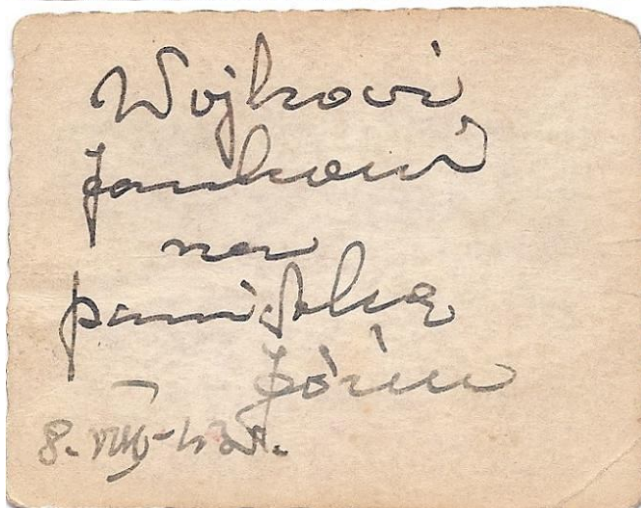 Wujkowi
Jankowi
na
pamiątkę
Józiu
8.VIII-43r.